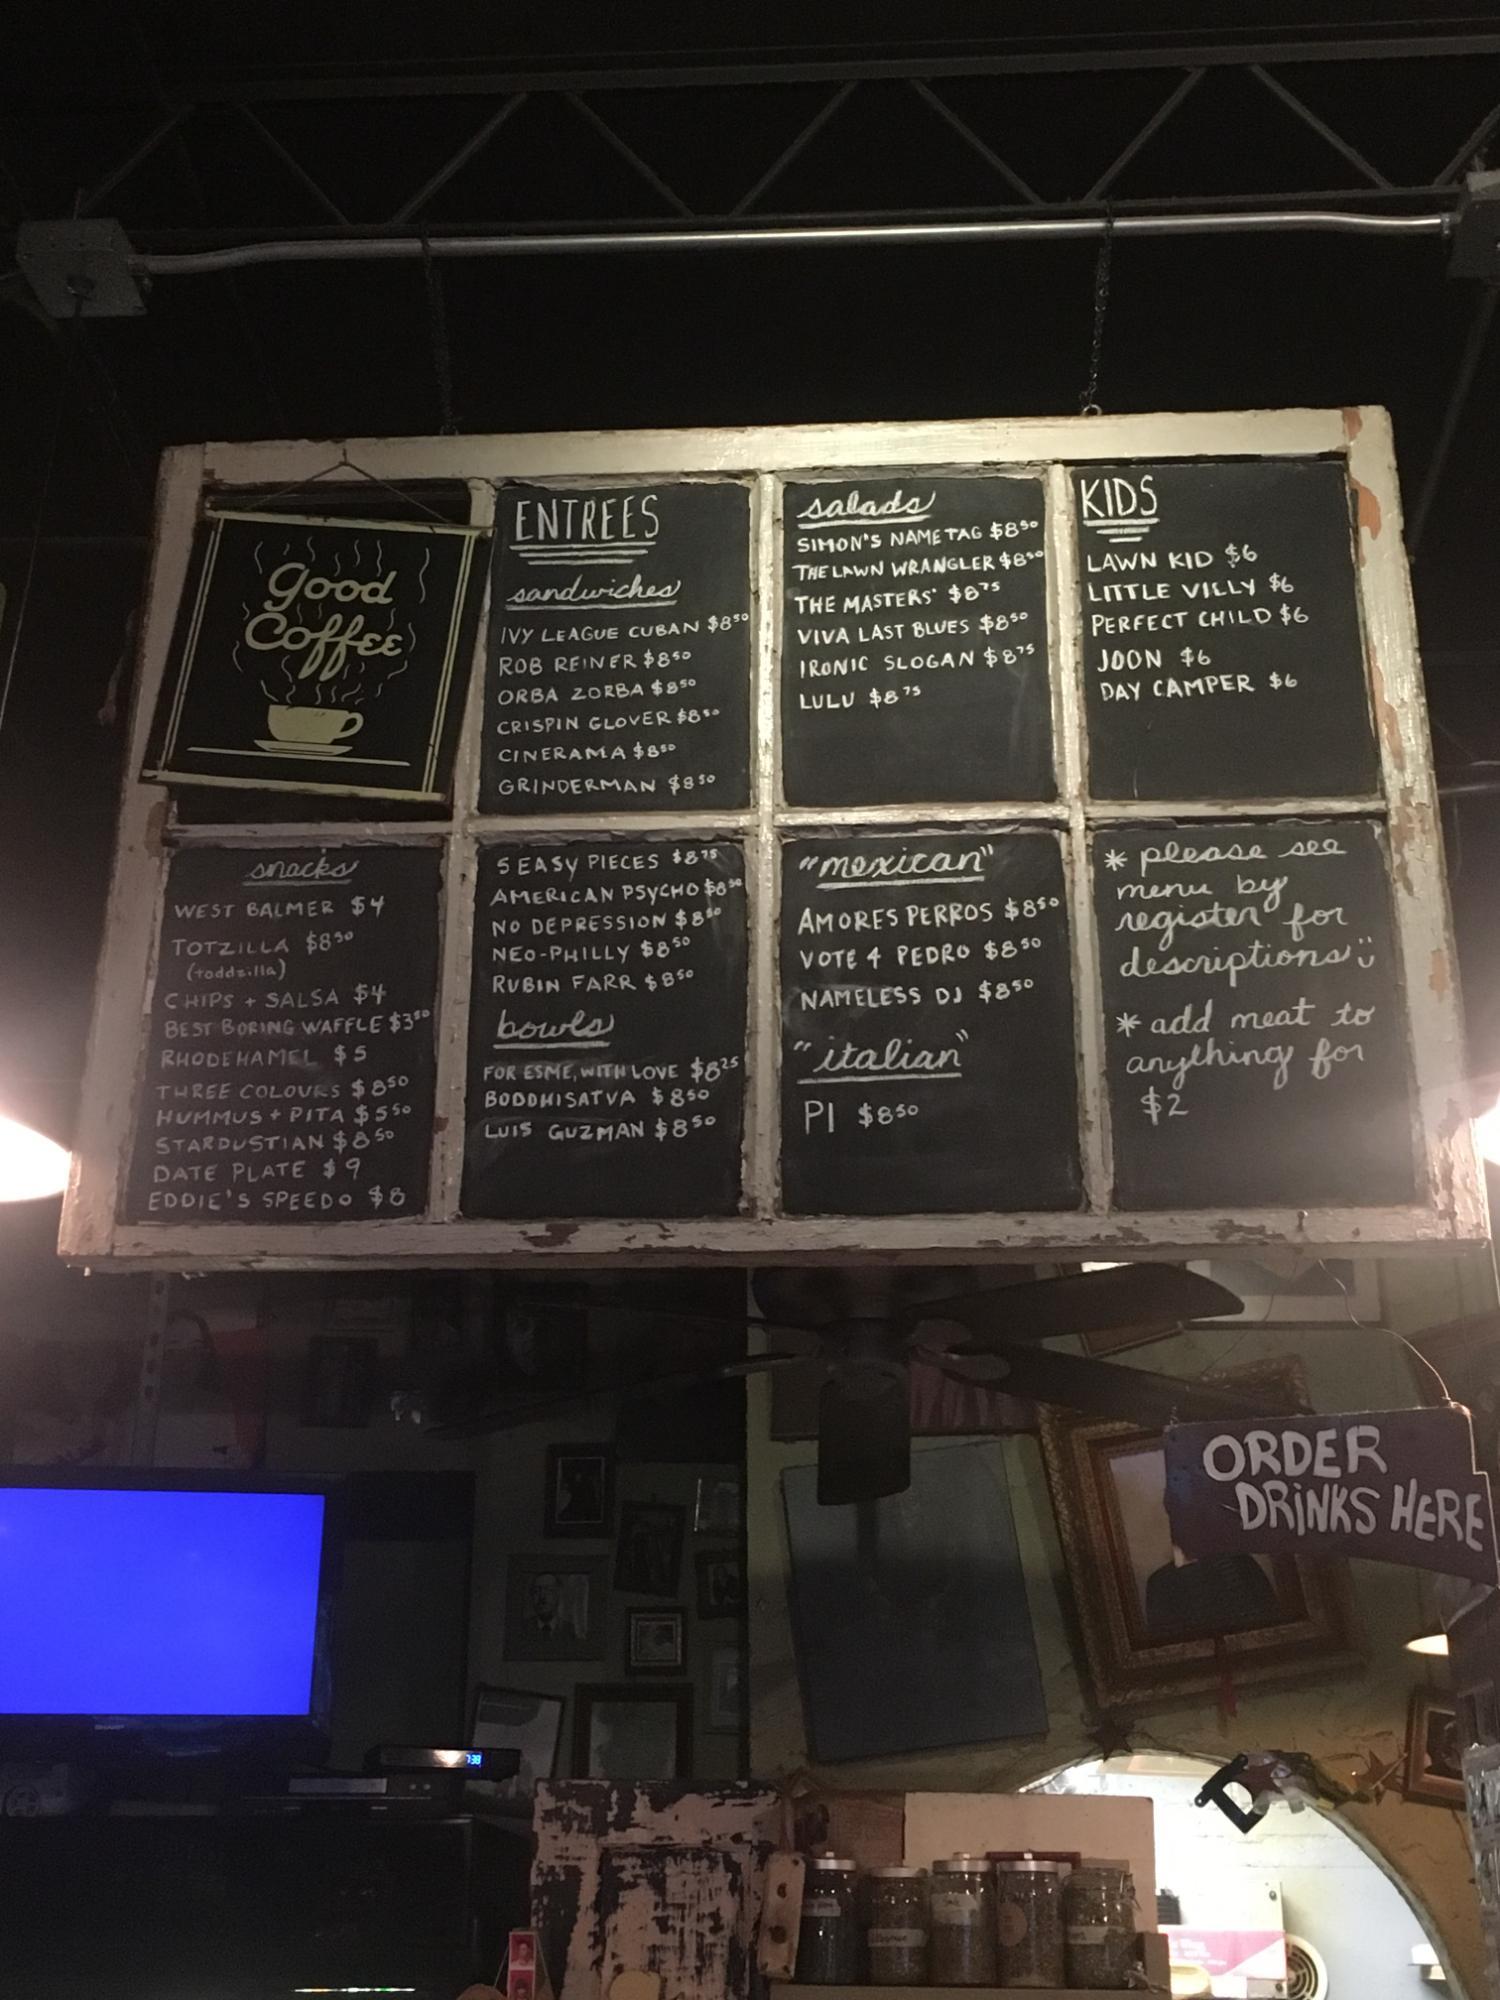 Good
Coffee
ENTREES
sandwiches
IVY LEAGUE CUBAN $8⁵⁰
ROB REINER $8⁵⁰
ORBA ZORBA $8⁵⁰
CRISPIN GLOVER $8⁵⁰
CINERAMA $8⁵⁰
GRINDERMAN $8⁵⁰
salads
SIMON'S NAME TAG $8⁵⁰
THE LAWN WRANGLER $8⁵⁰
THE MASTERS' $8⁷⁵
VIVA LAST BLUES $8⁵⁰
IRONIC SLOGAN $8⁷⁵
LULU $8⁷⁵
KIDS
LAWN KID $6
LITTLE VILLY $6
PERFECT CHILD $6
JOON $6
DAY CAMPER $6
snacks
WEST BALMER $4
TOTZILLA $8⁵⁰
(toddzilla)
CHIPS + SALSA $4
BEST BORING WAFFLE $3⁵⁰
RHODEHAMEL $5
THREE COLOURS $8⁵⁰
HUMMUS + PITA $5⁵⁰
STARDUSTIAN $8⁵⁰
DATE PLATE $9
EDDIE'S SPEEDO $8
5 EASY PIECES $8⁷⁵
AMERICAN PSYCHO $8⁵⁰
NO DEPRESSION $8⁵⁰
NEO-PHILLY $8⁵⁰
RUBIN FARR $8⁵⁰
bowls
FOR ESME, WITH LOVE $8²⁵
BODDHISATVA $8⁵⁰
LUIS GUZMAN $8⁵⁰
"mexican"
AMORES PERROS $8⁵⁰
VOTE 4 PEDRO $8⁵⁰
NAMELESS DJ $8⁵⁰
"italian"
PI $8⁵⁰
* please see
menu by
register for
descriptions :)
* add meat to
anything for
$2
ORDER
DRINKS HERE
SHARP
7:38